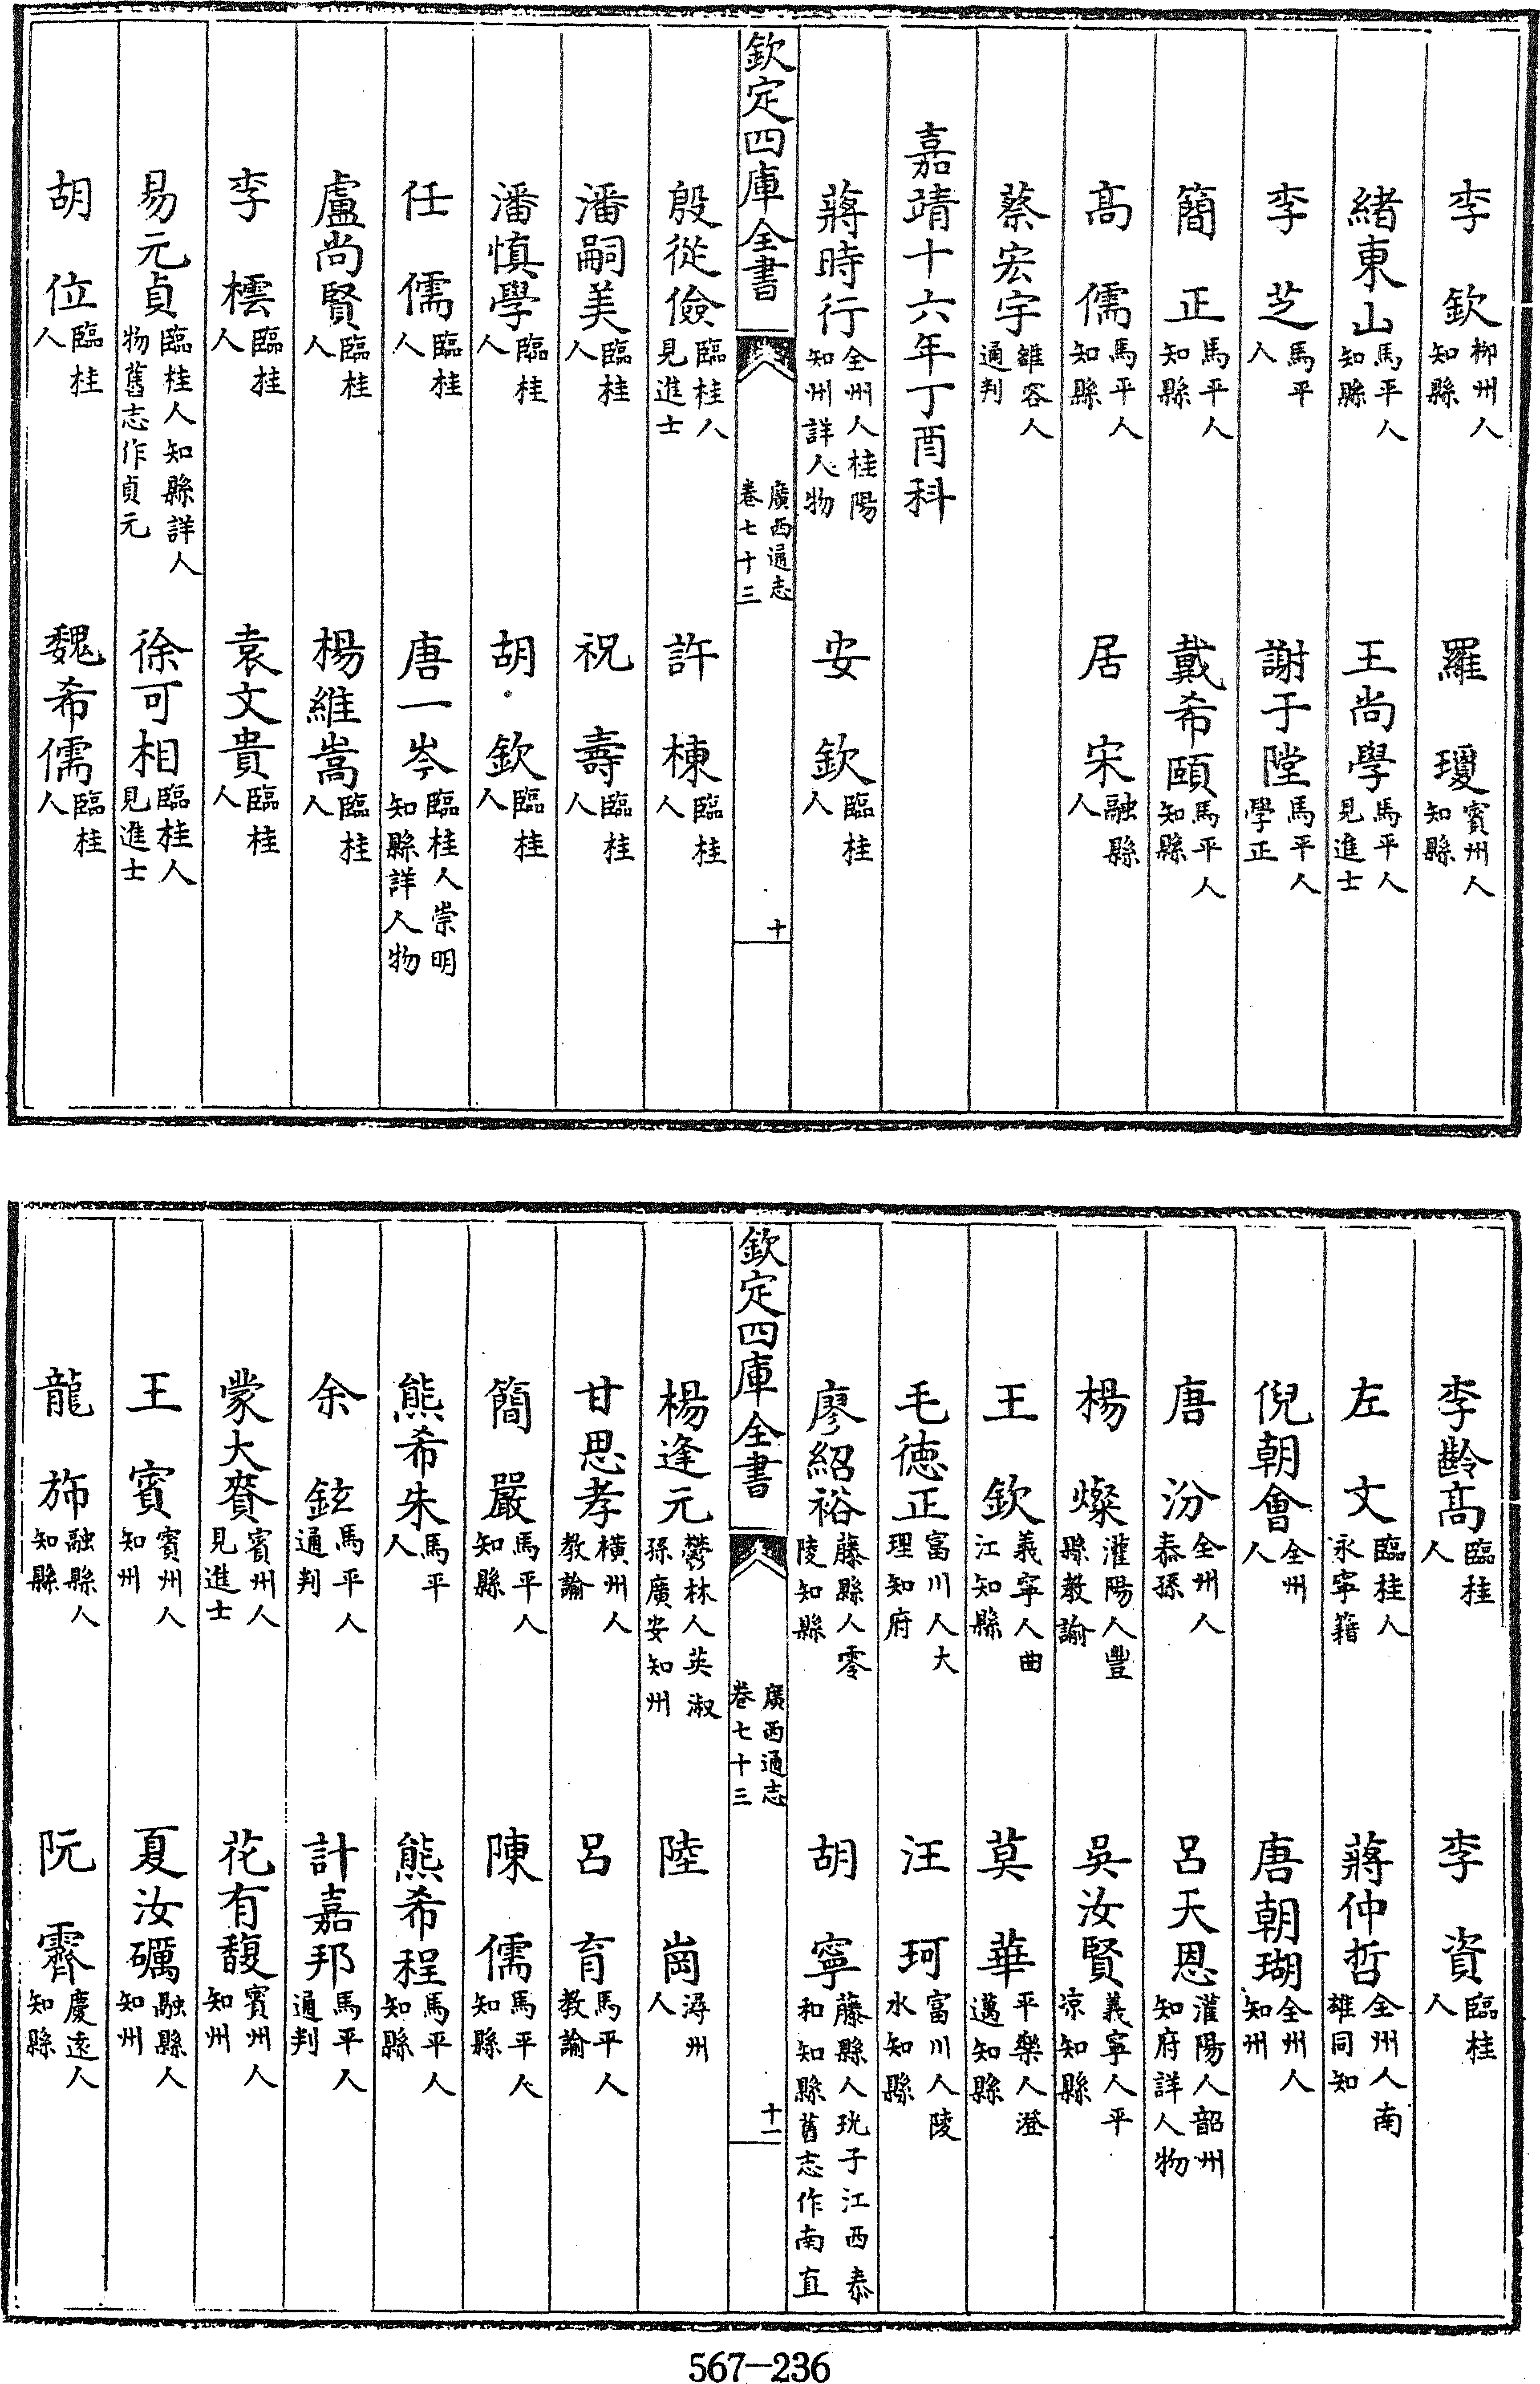 李欽柳州人知縣　羅瓊賓州人知縣
緒東山馬平人知縣　王尚學馬平人見進士
李芝馬平人　謝于陞馬平人學正
簡正馬平人知縣　戴希頤馬平人知縣
高儒馬平人知縣　居宋融縣人
蔡宏宇雒容人通判
嘉靖十六年丁酉科
蔣時行全州人桂陽知州詳人物　安欽臨桂人
欽定四庫全書　廣西通志卷七十三　十
殷從儉臨桂人見進士　許棟臨桂人
潘嗣美臨桂人　祝壽臨桂人
潘慎學臨桂人　胡欽臨桂人
任儒臨桂人　唐一岑臨桂人崇明知縣詳人物
盧尚賢臨桂人　楊維嵩臨桂人
李橒臨桂人　袁文貴臨桂人
易元貞臨桂人知縣詳人物舊志作貞元　徐可相臨桂人見進士
胡位臨桂人　魏希儒臨桂人
李齡高臨桂人　李資臨桂人
左文臨桂人永寧籍　蔣仲哲全州人南雄同知
倪朝會全州人　唐朝瑚全州人知州
唐汾全州人泰孫　呂天恩灌陽人韶州知府詳人物
楊燦灌陽人豐縣教諭　吳汝賢義寧人平涼知縣
王欽義寧人曲江知縣　莫華平樂人澄邁知縣
毛德正富川人大理知府　汪珂富川人陵水知縣
廖紹裕藤縣人零陵知縣　胡寧藤縣人珖子江西泰和知縣舊志作南直
欽定四庫全書　廣西通志卷七十三　十一
楊逢元鬱林人英孫廣安知州　淑　陸崗潯州人
甘思孝橫州人教諭　呂育馬平人教諭
簡嚴馬平人知縣　陳儒馬平人知縣
熊希朱馬平人　熊希程馬平人知縣
余鉉馬平人通判　計嘉邦馬平人通判
蒙大賚賓州人見進士　花有馥賓州人知州
王賓賓州人知州　夏汝礪融縣人知州
龍旆融縣人知縣　阮霽慶遠人知縣
567—236